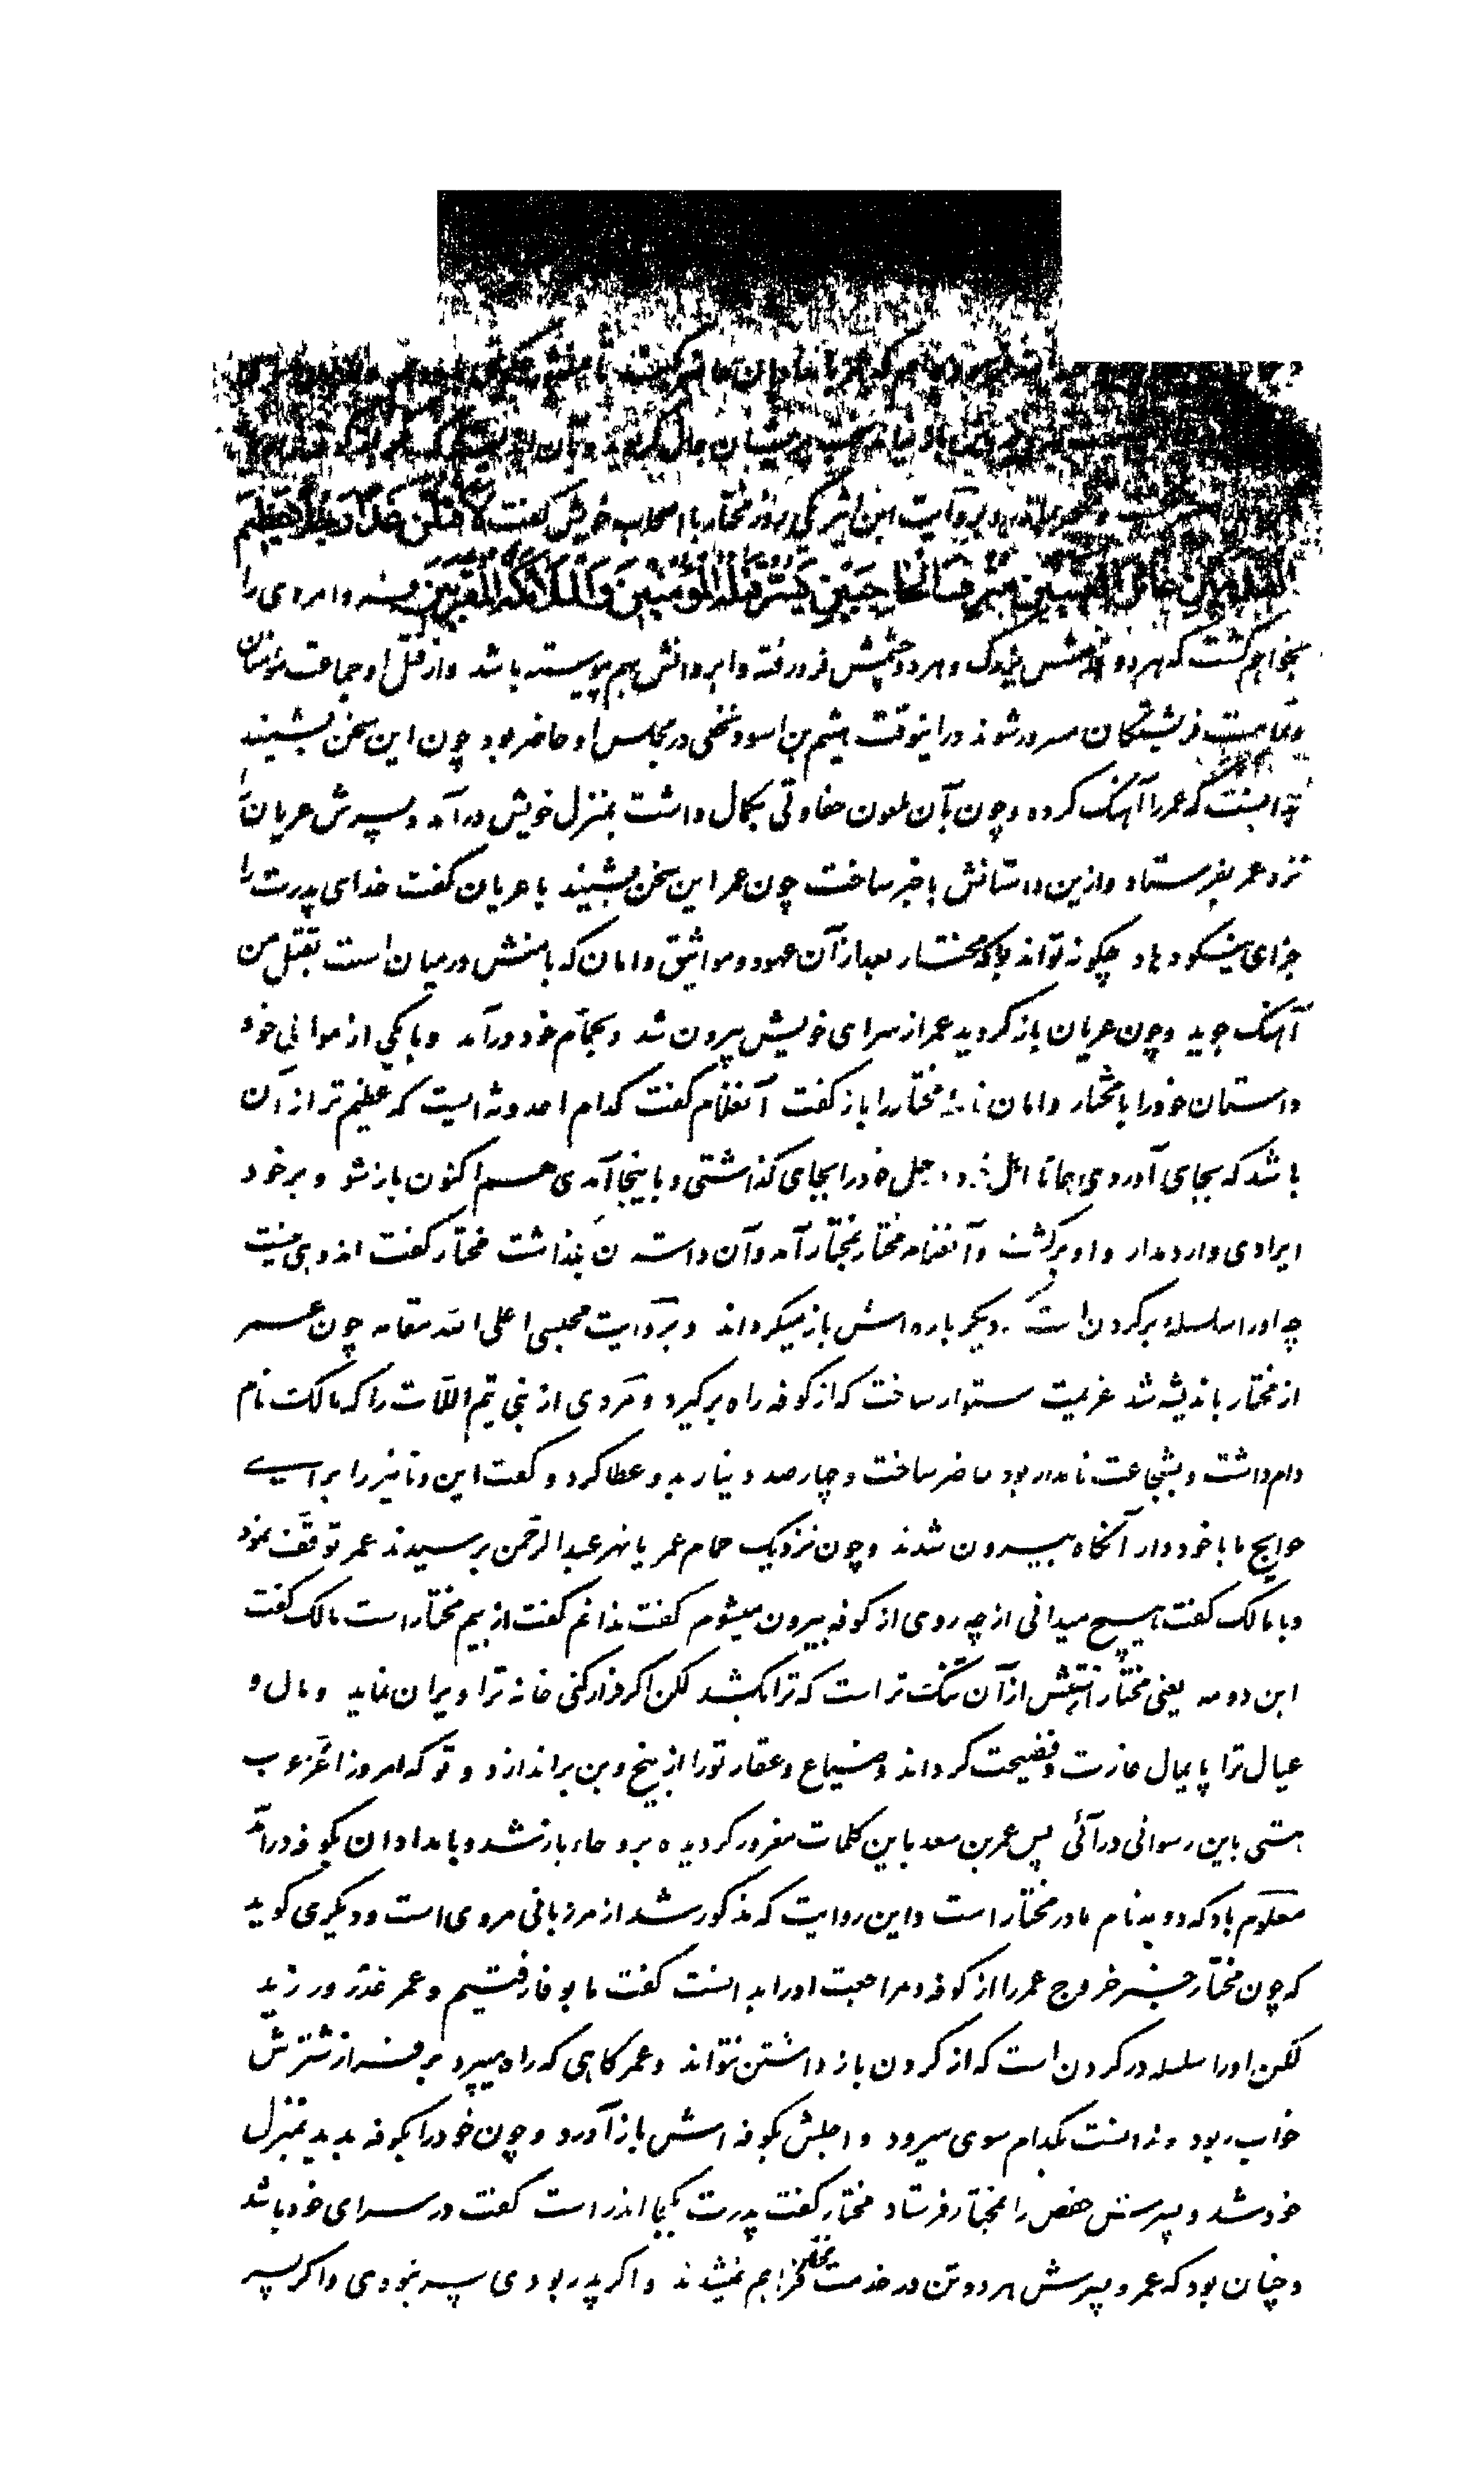 و بروایت ابن اثیر یکی روز مختار با اصحاب خویش گفت لاقتلن غدا رجلا عظیم
القدمین غائر العینین مشرف الحاجبین یسر قتله المؤمنین والملائکة المقربین فردا مردی را
بخواهم کشت که هر دو قدمش بزرک و هر دو چشمش فرو رفته و ابروانش بهم پیوسته باشد و از قتل او جماعت مؤمنان
فریشتگان مسرور شوند در اینوقت هیثم بن اسود نخعی در مجلس او حاضر بود چون این سخن بشنید
بدانست که عمر را آهنک کرده و چون بآن ملعون حفاوتی بکمال داشت بمنزل خویش در آمد و پسرش عریان را
نزد عمر بفرستاد و ازین داستانش با خبر ساخت چون عمر این سخن بشنید با عریان گفت خدای پدرت را
جزای نیکو دهاد چگونه تواند بود که مختار بعد از آن عهود و مواثیق و امان که با منش در میان است بقتل من
آهنک جوید و چون عریان باز گردید عمر از سرای خویش بیرون شد و بحمام خود در آمد و با یکی از موالی خود
داستان خود را با مختار و امان نامه مختار را باز گفت آنغلام گفت کدام احدوثه ایست که عظیم تر از آن
باشد که بجای آوردی همانا اهل و رحل خود را بجای گذاشتی و باینجا آمدی هم اکنون باز شو و بر خود
ایرادی وارد مدار و او برگشت و آنغلام مختار بمختار آمد و آن داستان بگذاشت مختار گفت اندوهی نیست
چه او را سلسلهٔ برگردن است که دیگر باره اش باز میگرداند و بروایت مجلسی اعلی الله مقامه چون عمر
از مختار باندیشه شد عزیمت ستوار ساخت که از کوفه راه بر گیرد و مردی از بنی تیم اللات را که مالک نام
داشت و بشجاعت نامدار بود حاضر ساخت و چهار صد دینار بدو عطا کرد و گفت این دنانیر را برای
حوایج ما با خود دار آنگاه بیرون شدند و چون نزدیک حمام عمر یا نهر عبدالرحمن برسیدند عمر توقف نمود
و با مالک گفت هیچ میدانی از چه روی از کوفه بیرون میشوم گفت ندانم گفت از بیم مختار است مالک گفت
ابن دومه یعنی مختار از آن تنگ تر است که ترا بکشد لکن اگر فرار کنی خانه ترا ویران نماید و مال و
عیال ترا پایمال غارت و فضیحت گرداند و ضیاع و عقار تو را از بیخ و بن براندازد و تو که امروز اعز عرب
هستی باین رسوائی در آئی پس عمر بن سعد باین کلمات مغرور گردیده باز شد و بامدادان بکوفه در آمد
معلوم باد که دومه نام مادر مختار است و این روایت که مذکور شد از مرزبانی مروی است و دیگری گوید
که چون مختار خبر خروج عمر را از کوفه و مراجعت او را بدانست گفت ما بوفا رفتیم و عمر غدر ورزید
لکن او را سلسله در گردن است که از گردن باز داشتن نتواند و عمر گاهی که راه میبرد بر فراز شترش
خواب ربود و ندانست بکدام سوی میرود و اجلش بکوفه اش باز آورد و چون خود را بکوفه بدید بمنزل
خود شد و پسرش حفص را بمختار فرستاد مختار گفت پدرت بکجا اندر است گفت در سرای خود باشد
و چنان بود که عمر و پسرش هر دو تن در خدمت مختار فراهم نمیشدند و اگر پدر بودی پسر نبودی و اگر پسر